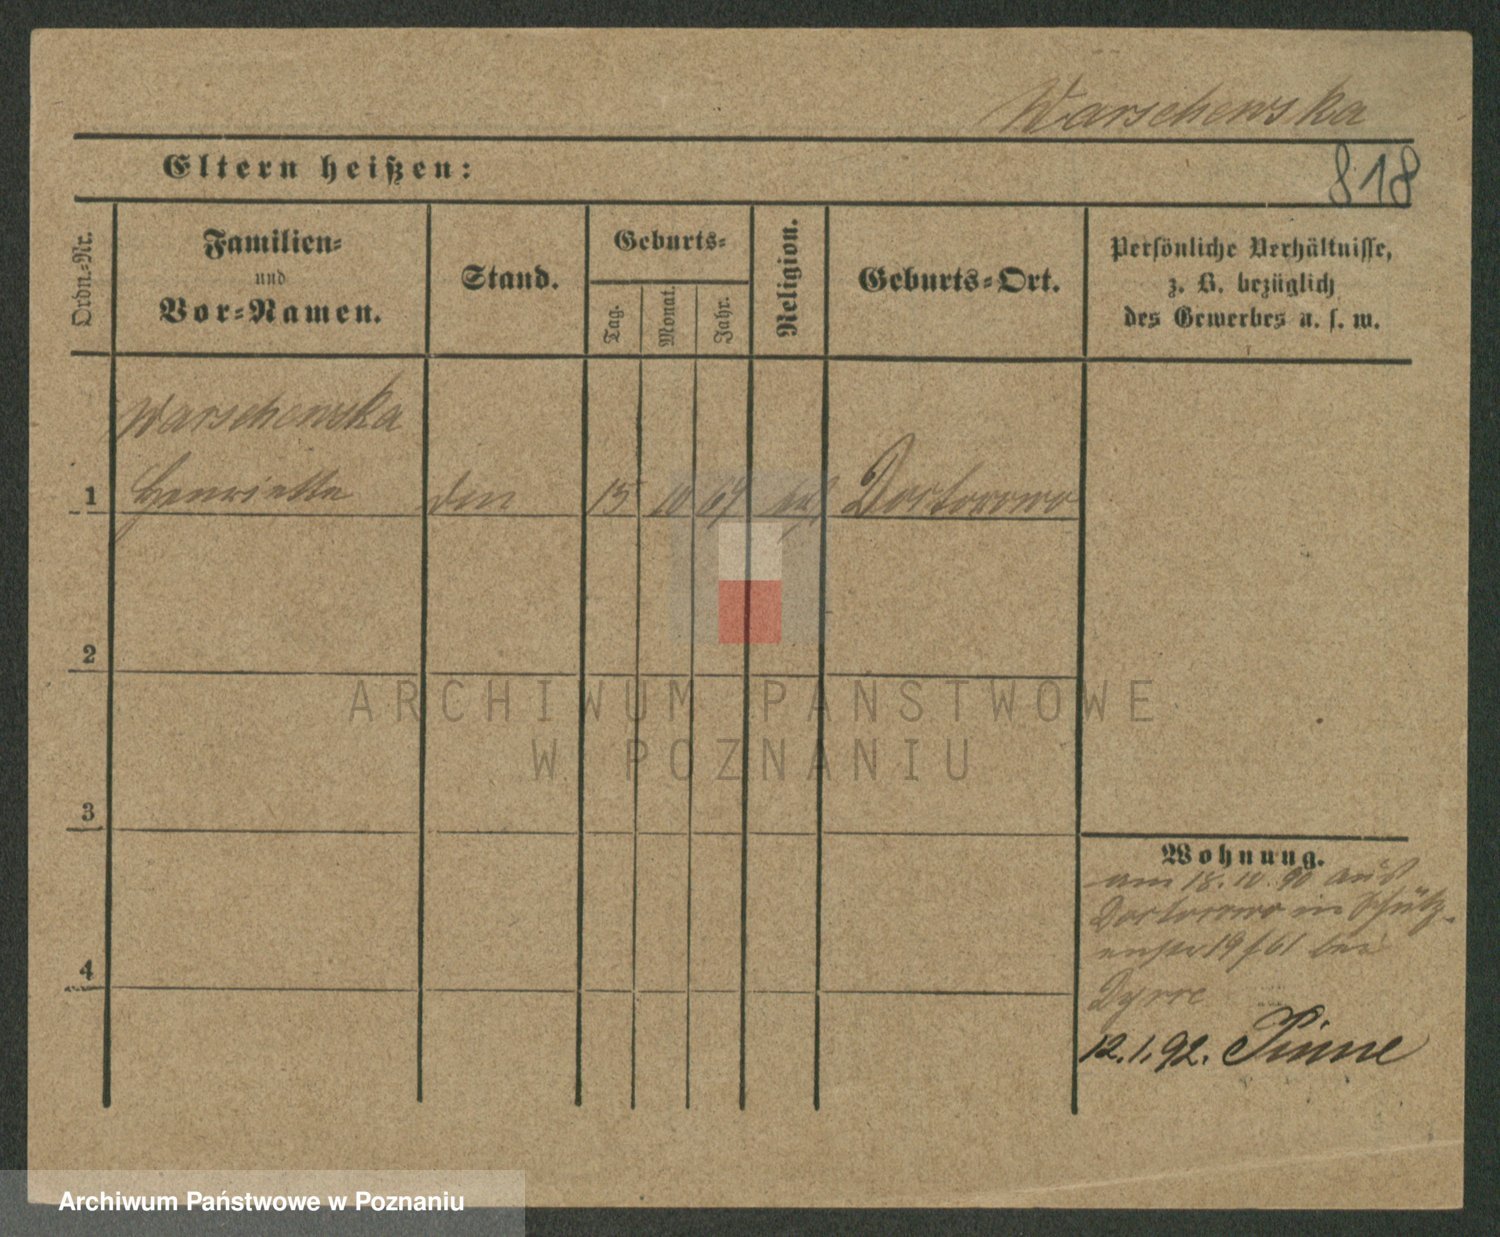 Warschewska
Eltern heißen:
818
Ordn.-Nr.
Familien-
und
Vor-Namen.
Stand.
Geburts-
Tag.
Monat.
Jahr.
Religion.
Geburts-Ort.
Persönliche Verhältnisse,
z. B. bezüglich
des Gewerbes u. s. w.
Warschewska
1 Henriette 15 10 67
2
3
4
Wohnung.
am 18. 10. 90 aus
in Schütz-
enstr 19 bei
12.1.92. Pinne
ARCHIWUM PAŃSTWOWE
W POZNANIU
Archiwum Państwowe w Poznaniu